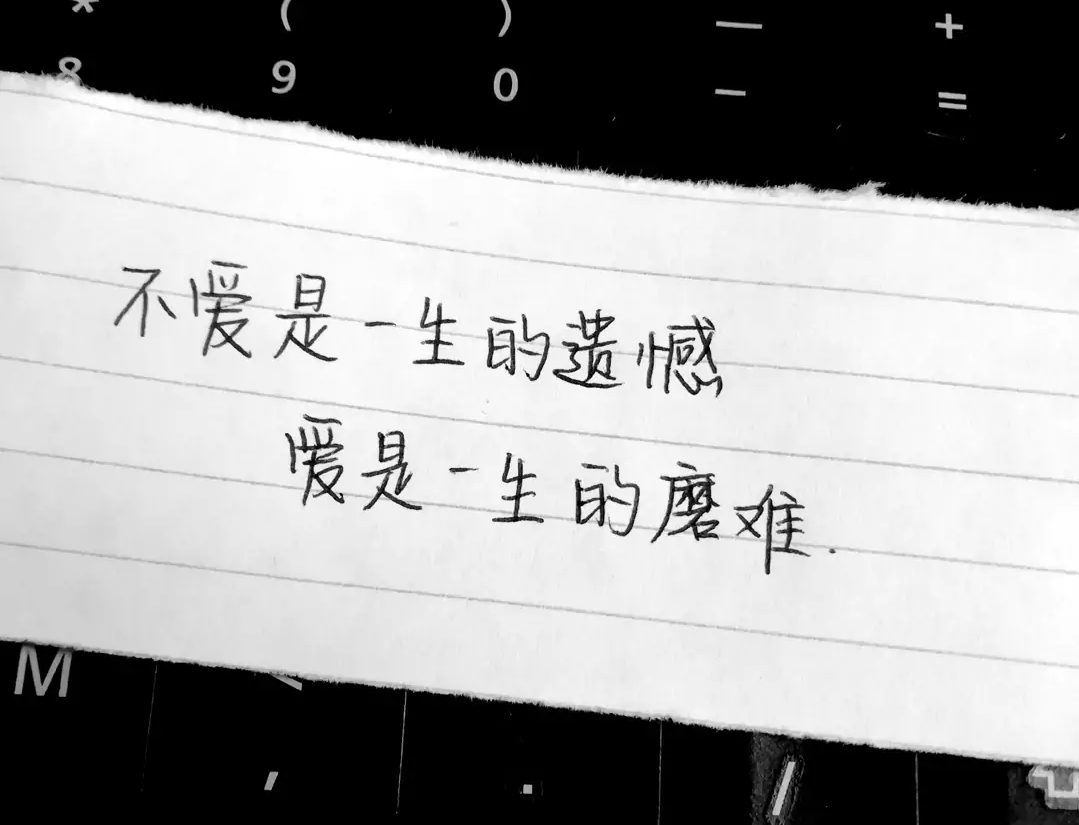 * ( ) — +
8 9 0 - =
不爱是一生的遗憾
爱是一生的磨难.
M
, . /